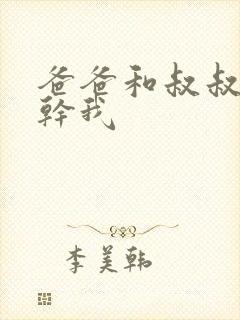 爸爸和叔叔
幹我
李美韩